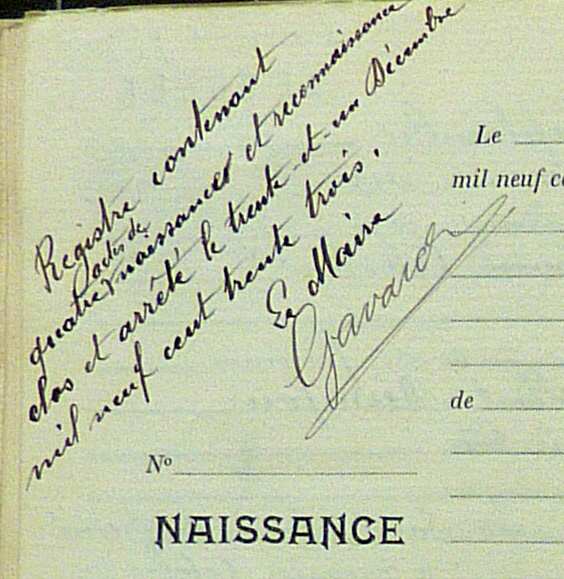 Registre contenant
actes de
quatre naissances et reconnaissance
clos et arrêté le trente-et-un Décembre
mil neuf cent trente trois.
Le Maire
Gavard
Le
mil neuf c
de
No
NAISSANCE